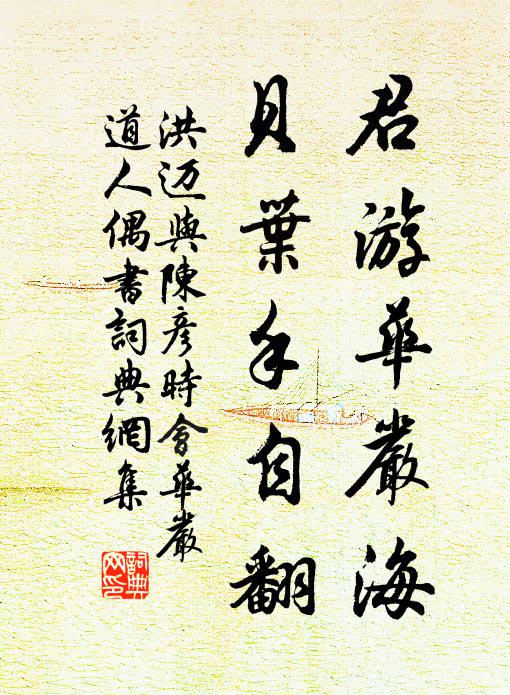 君游华嚴海
貝葉手自翻
洪迈與陳彦時會华嚴
道人偶書詞典網集
詞典
网印